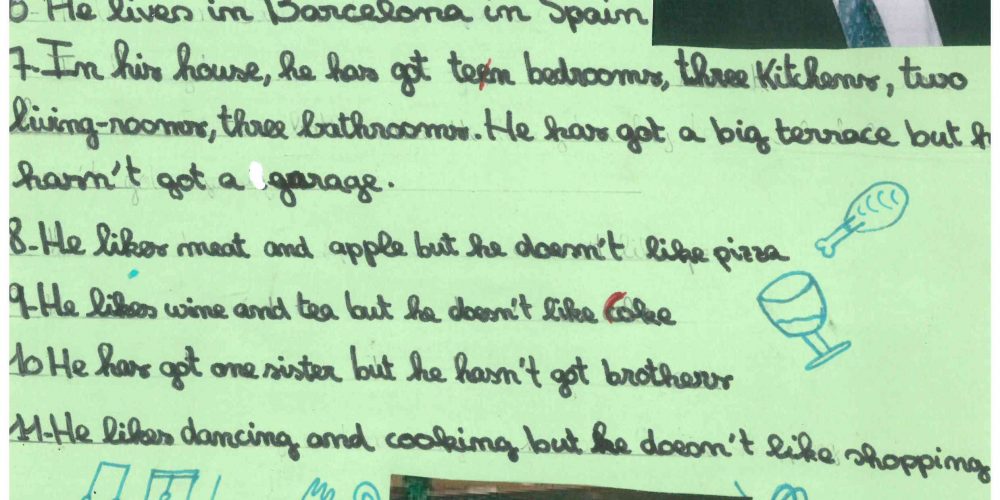 6 He lives in Barcelona in Spain
7-In his house, he has got ten bedrooms, three kitchens, two
living-rooms, three bathrooms. He has got a big terrace but h
hasn't got a garage.
8-He likes meat and apple but he doesn't like pizza
9-He likes wine and tea but he doesn't like Coke
10 He has got one sister but he hasn't got brothers
11-He likes dancing and cooking but he doesn't like shopping